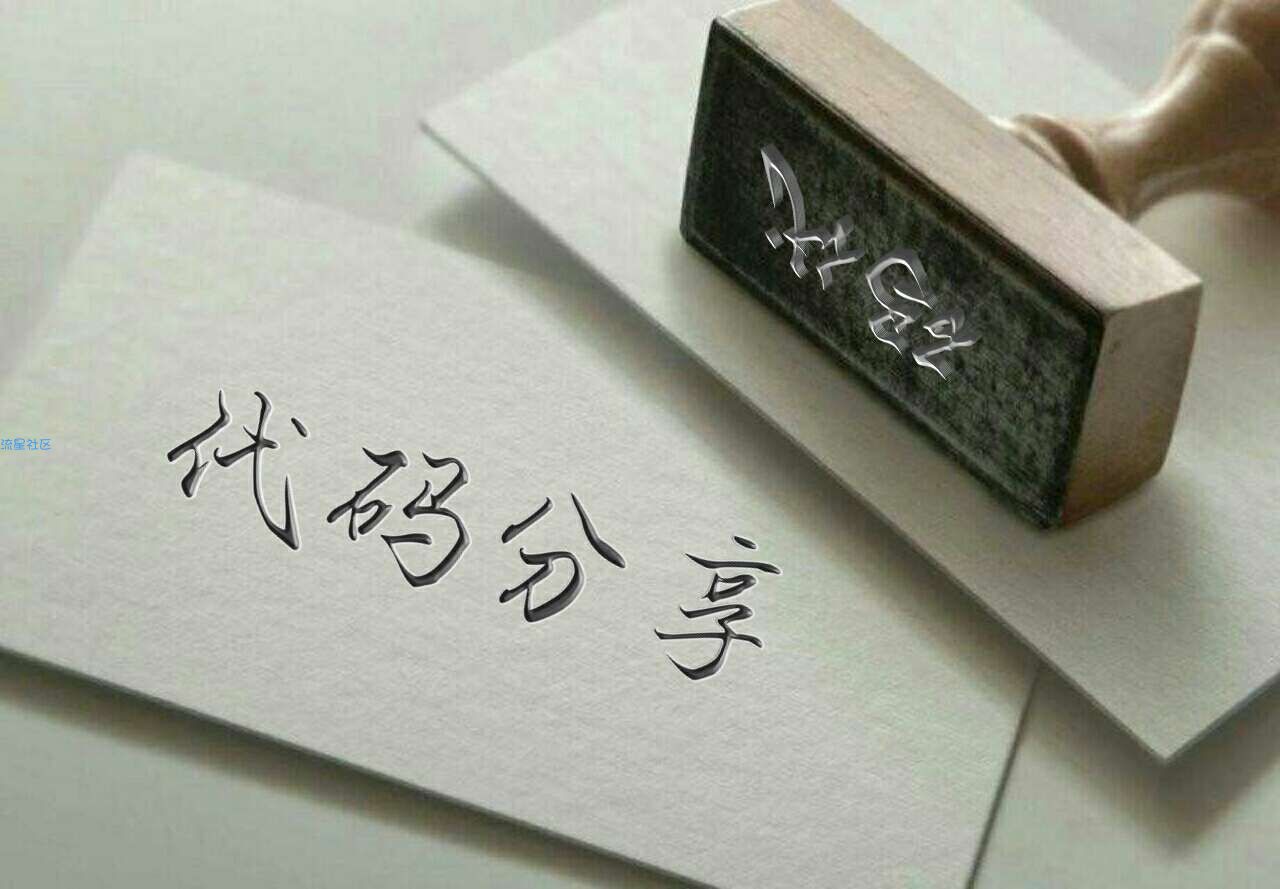 流星社区
代码分享